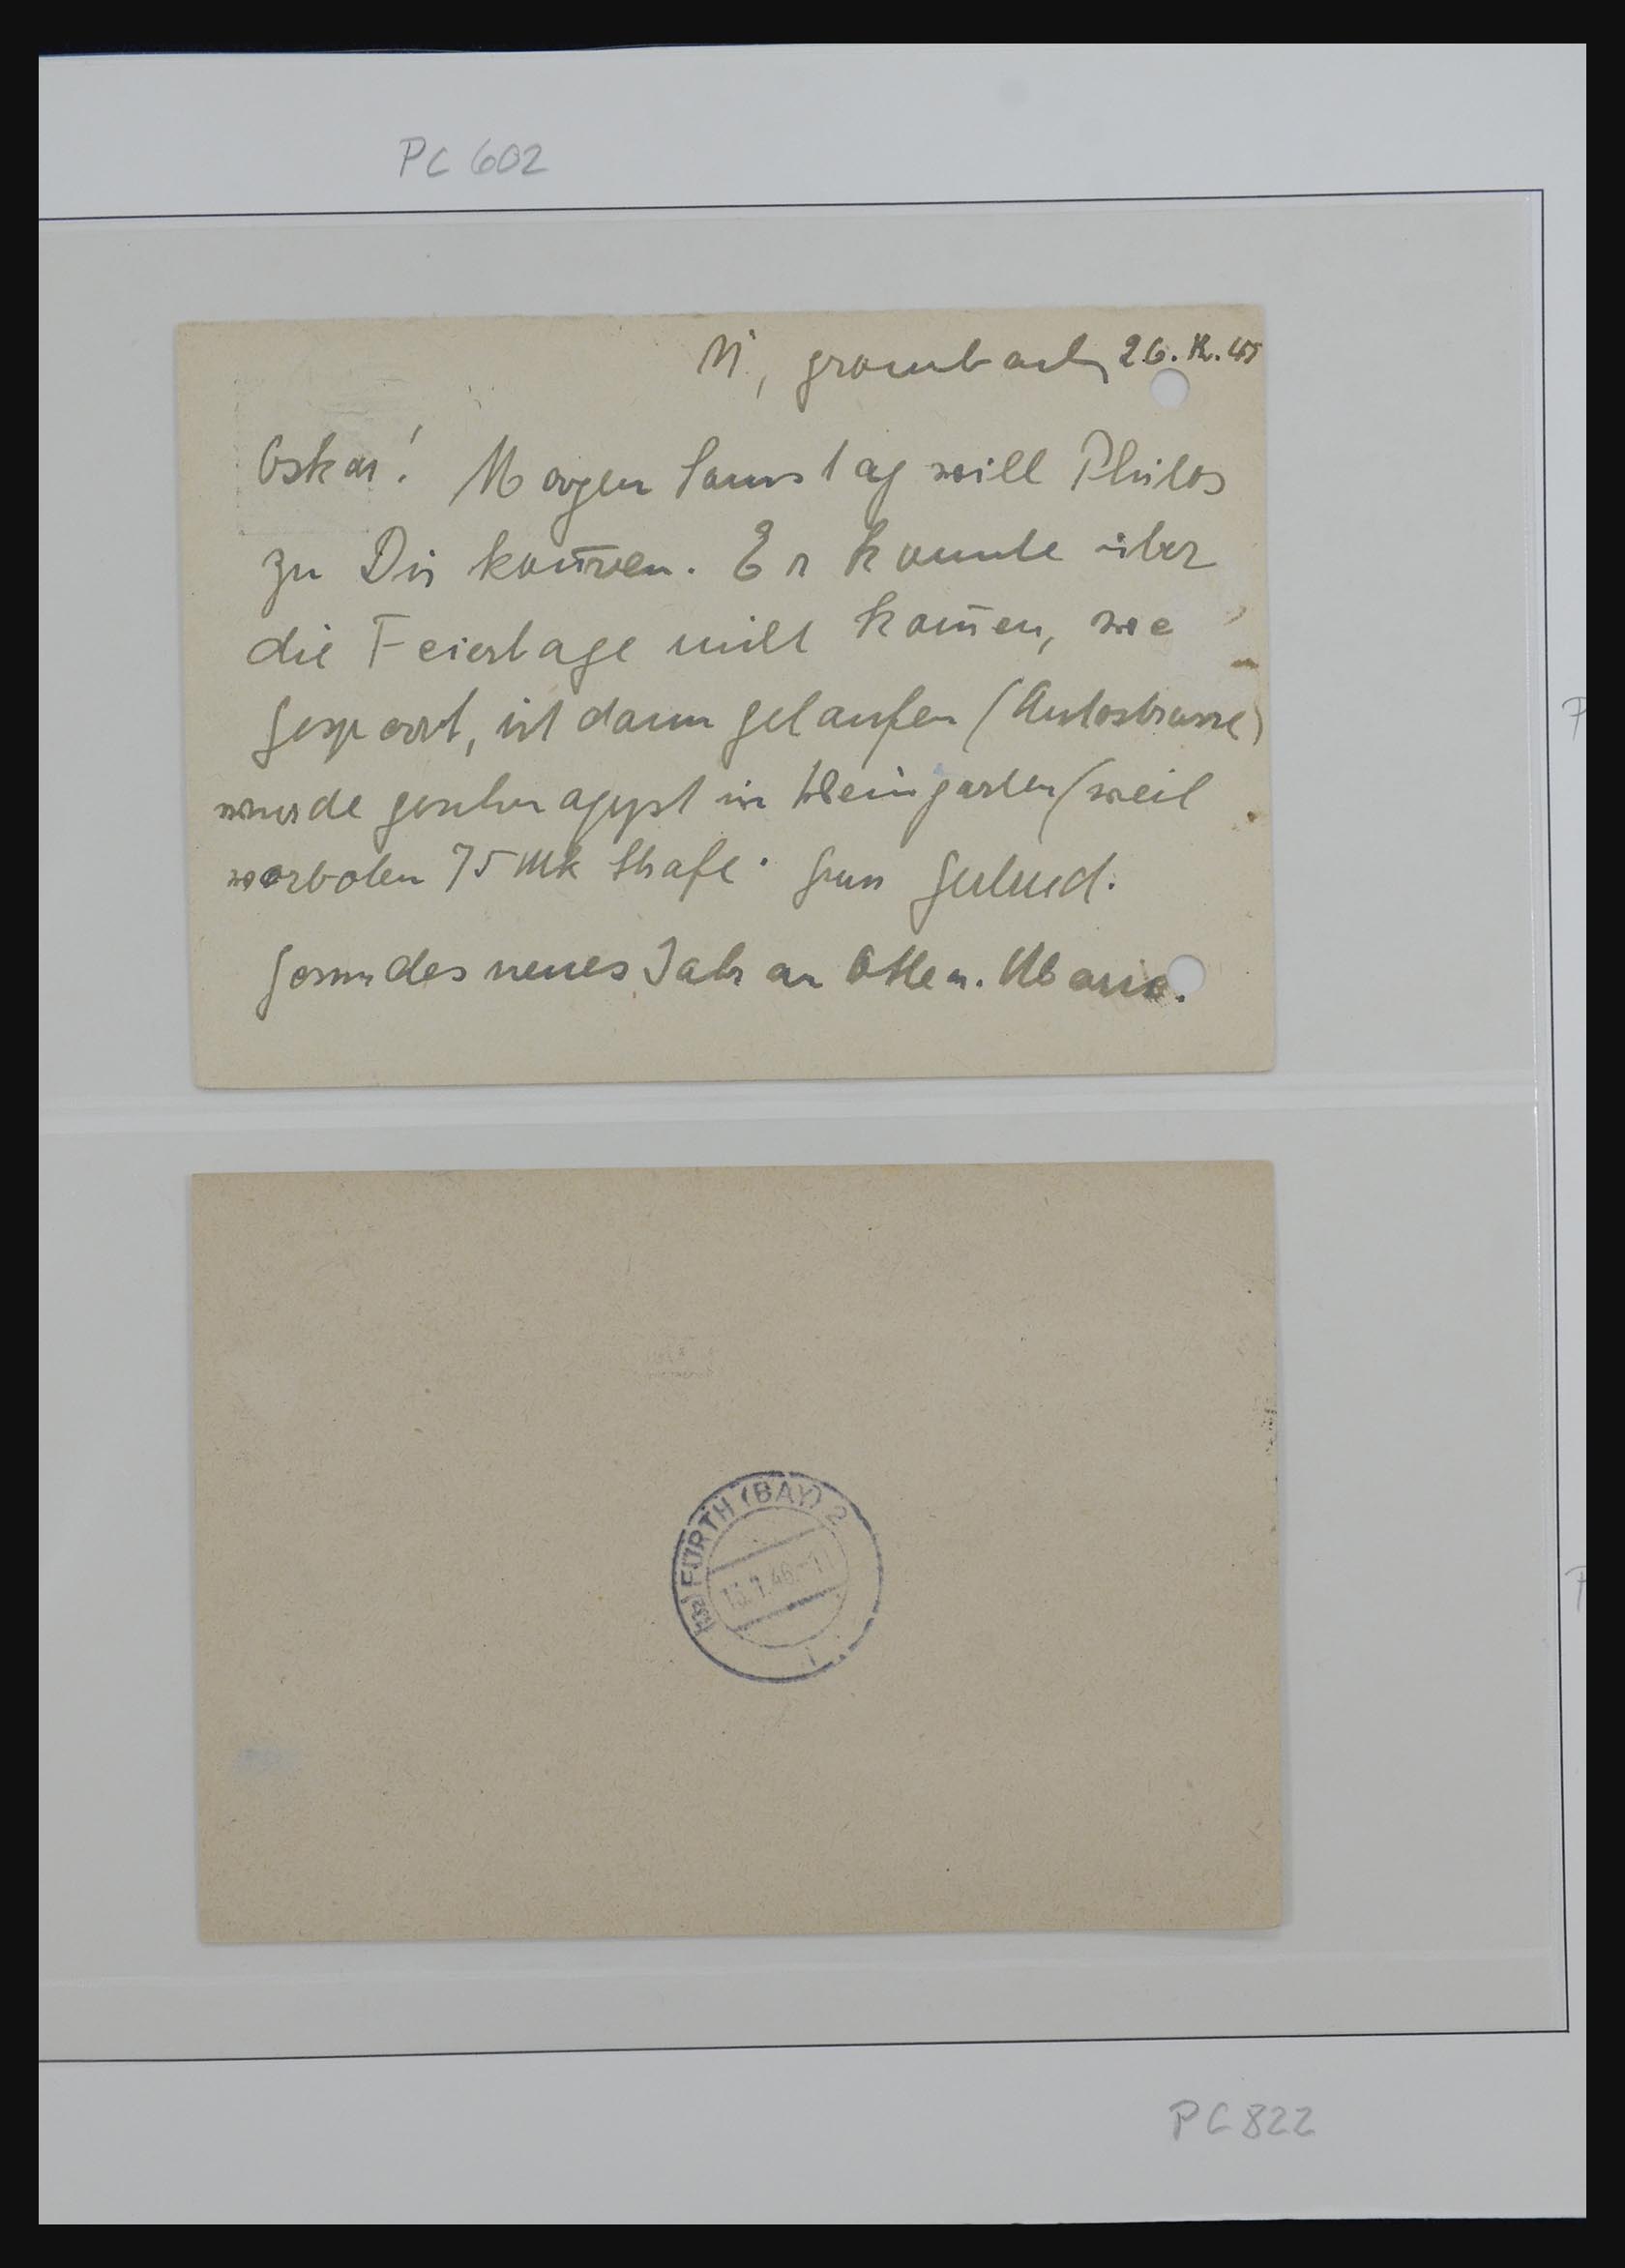 PC 602
grombach, 26. 12. 45
Oskar! Morgen Samstag will Philos
zu Dir kom̄en. Er konnte über
die Feiertage nicht kom̄en, 
gesperrt, ist dann gelaufen (Autostrasse)
wurde geschnappst in Weingarten (weil
verboten 75 Mk Strafe. Grus
Gesundes neues Jahr an Alle u. Marie.
FÜRTH (BAY) 2
.1.46.-1
PC 822